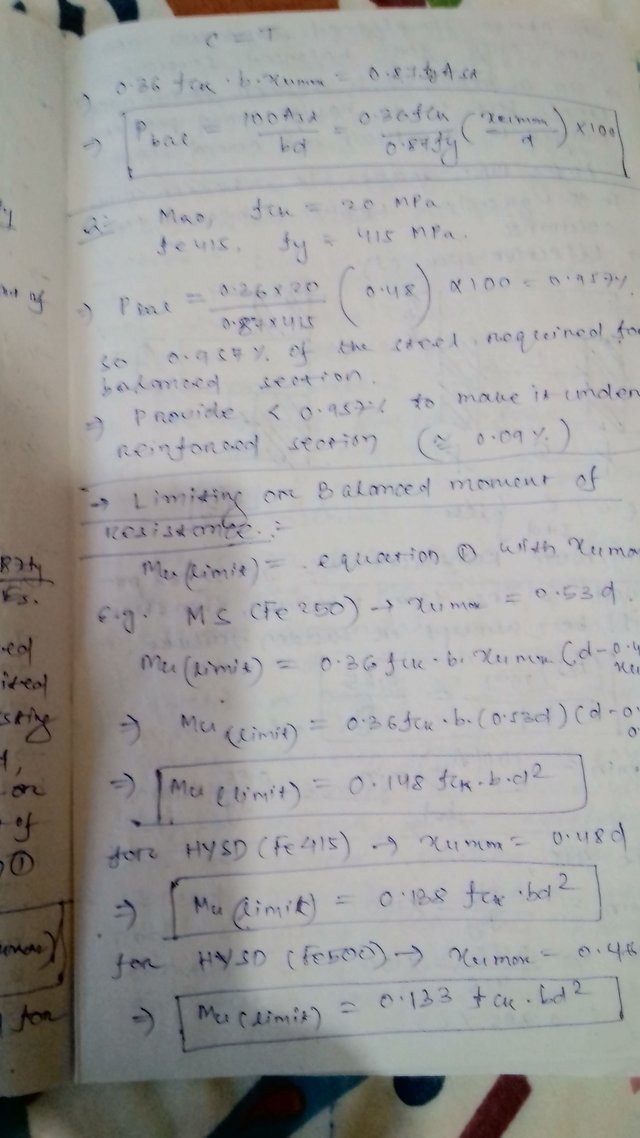 C = T
⇒ 0.36 fck · b · xumax = 0.87 fy Ast
⇒ Pbal = 100Ast / bd = 0.36fck / 0.87fy (xumax / d) × 100
Q:- M20, fck = 20 MPa
fe415, fy = 415 MPa.
⇒ Pbal = 0.36×20 / 0.87×415 (0.48) × 100 = 0.957%
so 0.957% of the steel required for
balanced section.
⇒ Provide < 0.957% to make it under
reinforced section (≈ 0.09%)
→ Limiting or Balanced moment of
resistance :-
Mu(limit) = equation ① with xumax
E.g. MS (Fe 250) → xumax = 0.53d.
Mu(limit) = 0.36 fck · b · xumax (d - 0.4
xu
⇒ Mu(limit) = 0.36fck · b · (0.53d) (d - 0.
0.
⇒ Mu(limit) = 0.148 fck · b · d²
for HYSD (Fe415) → xumax = 0.48d
⇒ Mu(limit) = 0.138 fck · bd²
for HYSD (Fe500) → xumax = 0.46
⇒ Mu(limit) = 0.133 fck · bd²
of
87fy
Es.
ed
d,
or
of
①
for